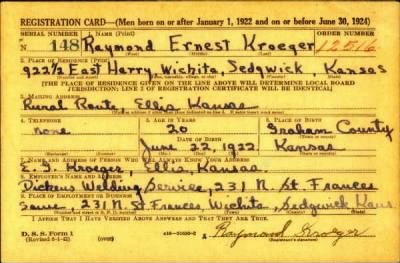 REGISTRATION CARD—(Men born on or after January 1, 1922 and on or before June 30, 1924)
SERIAL NUMBER 1. NAME (Print) ORDER NUMBER
N 148 Raymond Ernest Kroeger 12516
2. PLACE OF RESIDENCE (Print)
922½ East Harry Wichita, Sedgwick, Kansas
[THE PLACE OF RESIDENCE GIVEN ON THE LINE ABOVE WILL DETERMINE LOCAL BOARD
JURISDICTION; LINE 2 OF REGISTRATION CERTIFICATE WILL BE IDENTICAL]
3. MAILING ADDRESS
Rural Route, Ellis Kansas
4. TELEPHONE 5. AGE IN YEARS 6. PLACE OF BIRTH
none 20 Graham County
DATE OF BIRTH
June 22, 1922 Kansas
7. NAME AND ADDRESS OF PERSON WHO WILL ALWAYS KNOW YOUR ADDRESS
Kroeger, Ellis, Kansas
8. EMPLOYER'S NAME AND ADDRESS
Dickens Welding Service, 231 N. St. Frances
9. PLACE OF EMPLOYMENT OR BUSINESS
Same, 231 N. St. Frances, Wichita, Sedgwick Kans.
I AFFIRM THAT I HAVE VERIFIED ABOVE ANSWERS AND THAT THEY ARE TRUE.
D. S. S. Form 1
Raymond Kroeger
(Registrant's signature)